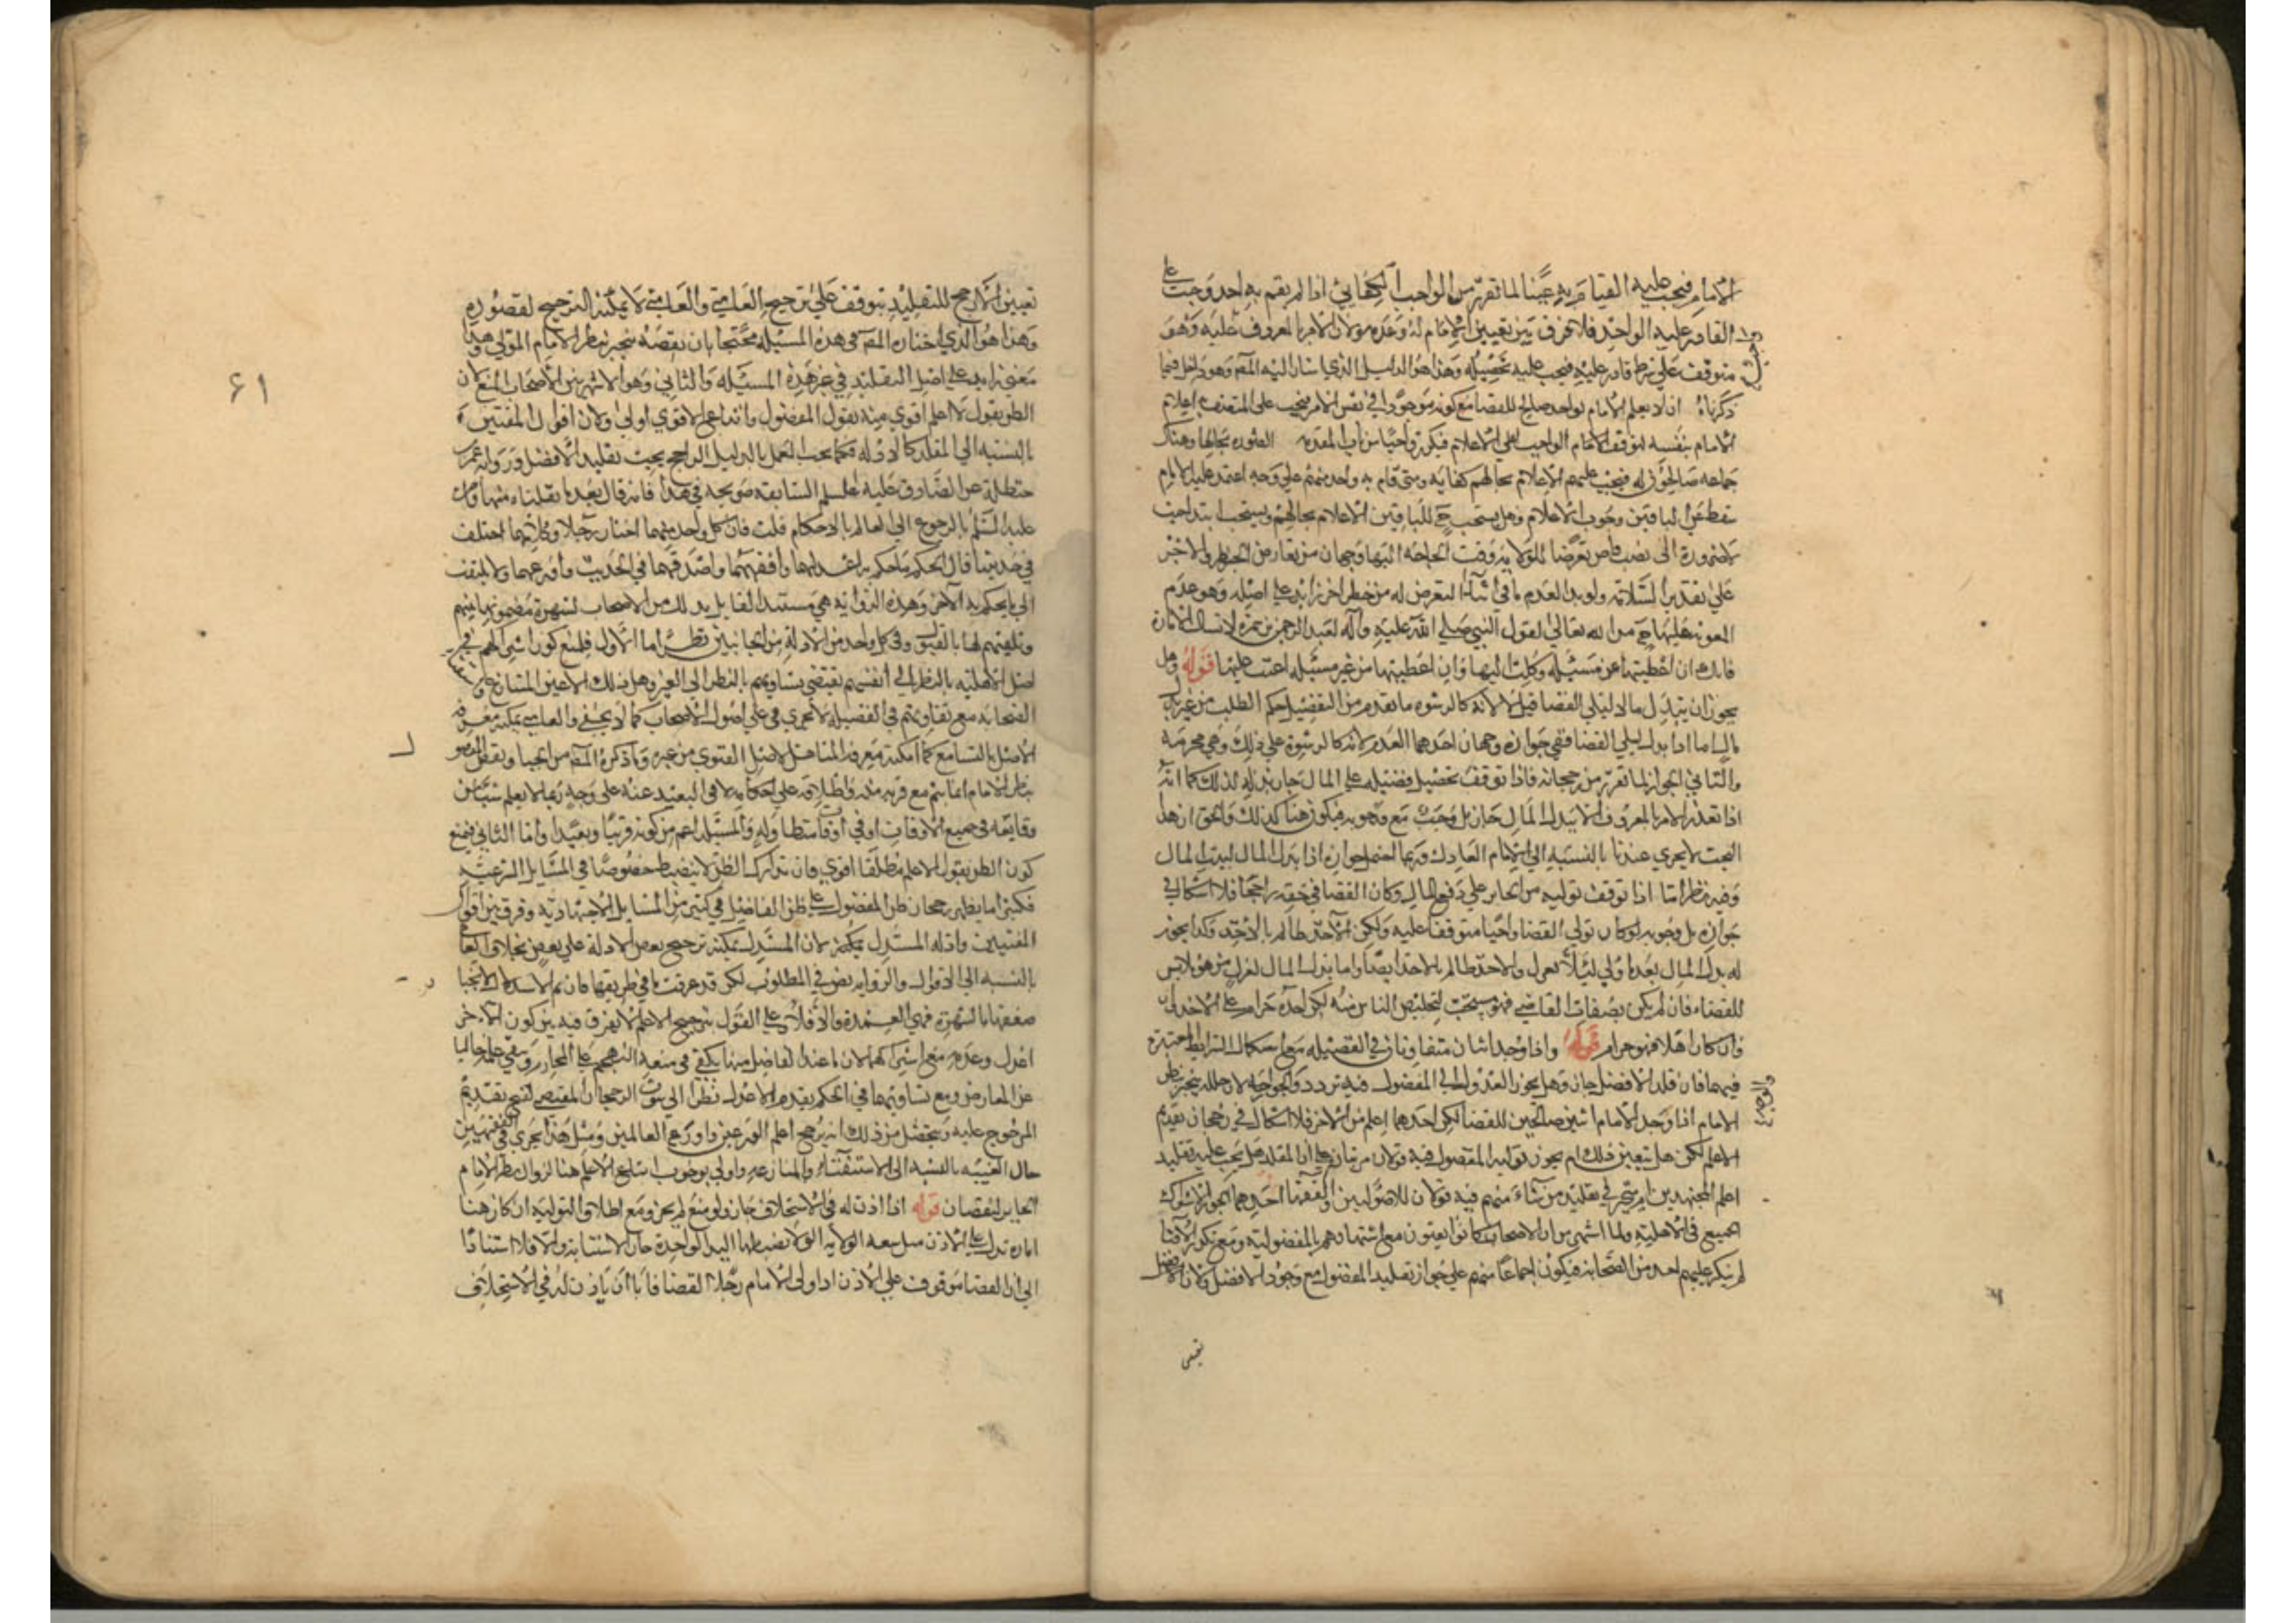 الامام فيجب عليه القيام به عينا لما تقرر من ان الواجب الكفائي اذا لم يقم به احد وجب على
القادر عليه الواحد فلا فرق بين تعيين الامام له وعدمه ولان الامر بالمعروف عليه وهو
متوقف على شرط قادر عليه فيجب عليه تحصيله وهذا هو الدليل الذي اشار اليه المص وهو داخل فيما
ذكرناه ان لا يعلم الامام بواحد صالح للقضا مع كونه موجودا في نفس الامر فيجب على المتصف به اعلام
الامام بنفسه لتوقف الامام الواجب على الاعلام فيكون واجبا من باب المقدمة بحالها وهناك
جماعه صالحون له فيجب عليهم الاعلام بحالهم كفايه ومتى قام به واحد منهم على وجه اعتمد عليه الامام
سقط عن الباقين وجوب الاعلام وهل يستحب ح للباقين الاعلام بحالهم ويستحب ابتدا حيث
لا ضرورة الى نصب قاض تعرضا للولايه وقت الحاجه اليها وجهان من تعارض الخطر والاجر
على تقدير السلامة ويويد العدم ما في التعرض له من خطر اخر زائد على اصله وهو عدم
المعونه عليها ح من الله تعالى لقول النبي صلى الله عليه وآله لعبد الرحمن بن سمرة لا تسال الامارة
فانك ان اعطيتها عن مسئله وكلت اليها وان اعطيتها من غير مسئله اعنت عليها قوله وهل
يجوز ان يبذل مالا ليلي القضا قيل لا لانه كالرشوه ما تقدم من التفصيل حكم الطلب من غير بذل
مال اما اذا بذله ليلي القضا ففي جوازه وجهان احدهما العدم لانه كالرشوة على ذلك وهي محرمة
والثاني الجواز لما تقرر من رجحانه فاذا توقف تحصيل فضيله على المال جاز بذله لذلك كما انه
اذا تعذر الامر بالمعروف الا ببذل المال جاز بل وجب مع وجوبه فيكون هنا كذلك والحق ان هذا
البحث لا يجري عندنا بالنسبه الى الامام العادل وربما احتمل جوازه اذا بذل المال لبيت المال
وفيه نظر اما اذا توقف توليه من الجاير على دفع المال وكان القضا في حقه راجحا فلا اشكال في
جوازه بل وجوبه لو كان تولي القضا واجبا متوقفا عليه ولكن الآخذ ظالم بالاخذ وكذا يجوز
له بذل المال بعد ما ولي لئلا يعزل والآخذ ظالم بالاخذ ايضا واما بذل المال لعزل من هو لابس
للقضاء فان لم يكن بصفات القاضي فهو مستحب لتخليص الناس منه لكن اخذه حرام على الآخذ
وان كان اهلا فهو حرام قوله واذا وجد اثنان متفاوتان في الفضيله مع استكمال الشرايط المعتبرة
فيهما فان قلد الافضل جاز وهل يجوز العدول الى المفضول فيه تردد والوجه الجواز لان خلله ينجبر بنظر
الامام اذا وجد الامام اثنين صالحين للقضا لكن احدهما اعلم من الآخر فلا اشكال في رجحان تقديم
الاعلم لكن هل يتعين ذلك ام يجوز توليه المفضول فيه قولان مرتبان على ان المقلد هل يجب عليه تقليد
اعلم المجتهدين ام يتخير في تقليد من شاء منهم فيه قولان للاصوليين والفقها احدهما الجواز لاشتراك
الجميع في الاهليه ولما اشتهر من ان الاصحاب كانوا يفتون مع اشتهارهم بالمفضوليه ومع تكرر الافتا
لم ينكر عليهم احد من الصحابة فيكون اجماعا منهم على جواز تقليد المفضول مع وجود الافضل ولان الافضل
تعيين
تعيين الارجح للتقليد يتوقف على ترجيح العامي والعامي لا يمكنه الترجيح لقصوره
وهذا هو الذي اختاره المص في هذه المسئله محتجا بان نقصه ينجبر بنظر الامام المولي وهذا
معنى زايد على اصل التقليد في غير هذه المسئله والثاني وهو الاشهر بين الاصحاب المنع لان
الظن بقول الاعلم اقوى منه بقول المفضول واتباع الاقوى اولى ولان اقوال المفتين
بالنسبه الى المقلد كالادله فكما يجب العمل بالدليل الراجح يجب تقليد الافضل ورواية عمر بن
حنظلة عن الصادق عليه السلم السابقه صريحه في هذا فانه قال بعد ما نقلناه منها
عليه السلم بالرجوع الى العالم بالاحكام قلت فان كل واحد منهما اختار رجلا وكلاهما اختلف
في حديثنا قال الحكم ما حكم به اعدلهما وافقههما واصدقهما في الحديث واورعهما ولا يلتفت
الى ما يحكم به الآخر وهذه الرواية هي مستند القايل بذلك من الاصحاب لشهرة مضمونها بينهم
وتلقيهم لها بالقبول وفي كل واحد من الادلة من الجانبين نظر اما الاول فلمنع كون اشتراكهم في
اصل الاهليه بالنظر الى انفسهم يقتضي تساويهم بالنظر الى الغير وهل ذلك الا عين المتنازع
الصحابه مع تفاوتهم في الفضيله لا يجري على اصول الاصحاب كما لا يخفى والعامي يمكنه معرفة
الافضل بالتسامع كما امكنه معرفة المتاهل لاصل الفتوى من غيره وما ذكره المص من انجبار نقص المفضول
بنظر الامام انما يتم مع قربه منه واطلاعه على احكامه لا في البعيد عنه على وجه ربما لا يعلم شيئا من
وقايعه في جميع الاوقات او في اوقات متطاوله والمسئله اعم من كونه قريبا وبعيدا واما الثاني فيمنع
كون الظن بقول الاعلم مطلقا اقوى فان مدارك الظن لا تنضبط خصوصا في المسايل الشرعيه
فكثيرا ما يظهر رجحان ظن المفضول على ظن الفاضل في كثير من المسايل الاجتهاديه وفرق بين اقوال
المفتيين وادله المستدل لان المستدل يمكنه ترجيح بعض الادلة على بعض بخلاف العامي
بالنسبه الى الاقوال والرواية نص في المطلوب لكن قد عرفت ما في طريقها فان تم الاستدلال لانجبار
ضعفها بالشهرة فهي العمدة والا فلا على القول بترجيح الاعلم لا يفرق فيه بين كون الآخر
اعدل وعدمه مع اشتراكهما لان ما عند الفاضل منهما يكفي في منعه التهجم على المحارم ويبقى علمه خاليا
عن المعارض ومع تساويهما في الحكم يقدم الاعدل نظرا الى ثبوت الرجحان المقتضي لقبح تقديم
المرجوح عليه ويتحصل من ذلك انه يرجح اعلم الورعين واورع العالمين ومثل هذا يجري في الفقيهين
حال الغيبه بالنسبه الى الاستفتاء والمنازعه واولى بوجوب اتباع الاعلم هنا لزوال نظر الامام
الجابر لنقصان قوله اذا اذن له في الاستخلاف جاز ولو منع لم يجز ومع اطلاق التوليه ان كان هناك
امارة تدل على الاذن مثل سعه الولايه التي لا تضبطها اليد الواحدة جاز الاستنابة والا فلا استنادا
الى ان القضا موقوف على الاذن اذا ولى الامام رجلا القضا فاما ان ياذن له في الاستخلاف
٦١